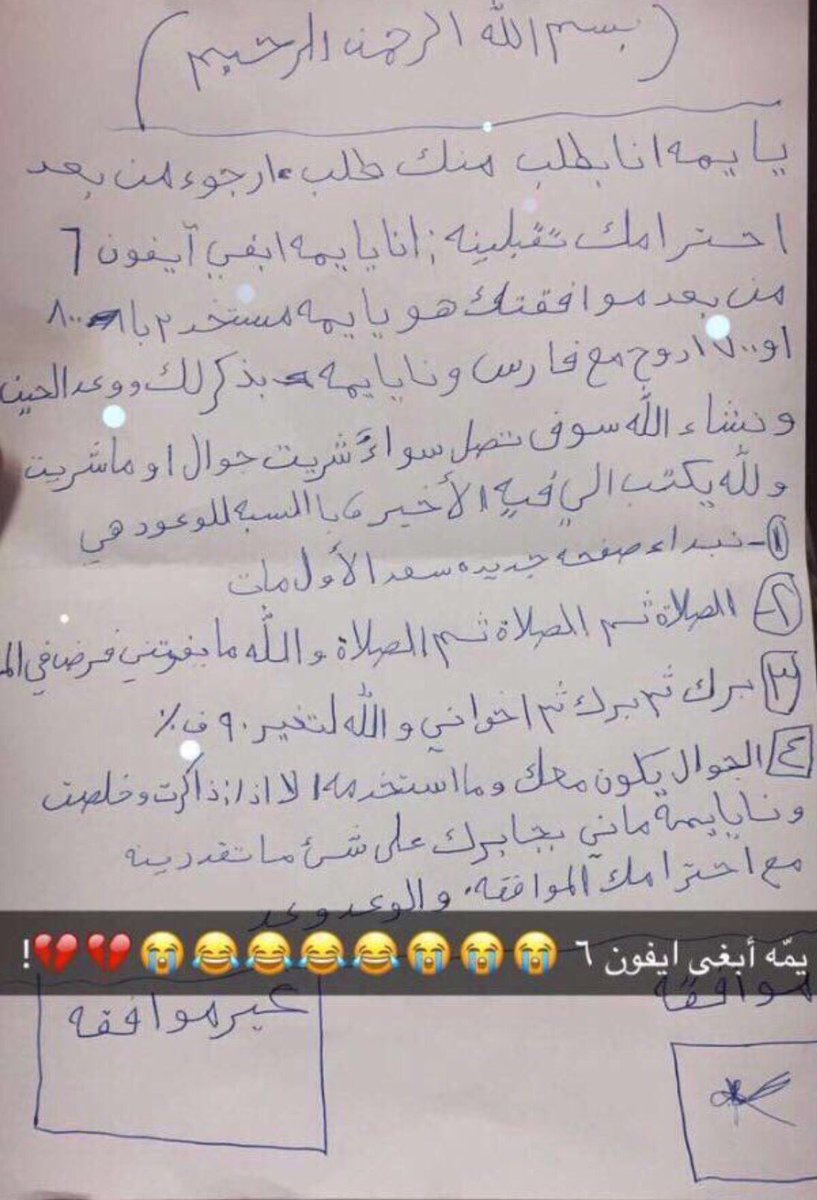 (بسم الله الرحمن الرحيم)
يا يمه انا بطلب منك طلب ارجوء من بعد
احترامك تقبلينه ; انا يا يمه ابغي آيفون ٦
من بعد موافقتك هو يا يمه مستخدم با ٨٠٠
او ١٧٠٠ روح مع فارس ونا يا يمه بذكر لك ووعد الحين
ونشاء الله سوف تصل سواءً شريت جوال او ما شريت
ولله يكتب الي فيه الأخير، با السبه للوعود هي
١- نبداء صفحه جديده سعد الأول مات
٢- الصلاة ثم الصلاة ثم الصلاة والله ما يفوتني فرض في الم
٣ برك ثم برك ثم اخواني والله لتغير ٩٠ ف٪
٤ الجوال يكون معك وما استخدمه الا اذا ذاكرت وخلصت
ونا يا يمة ماني بجابرك على شئ ما تقدرينه
مع احترامك الموافقه. والوعد وعد
يمّه أبغى ايفون ٦ 😭😭😭😂😂😂😂😭💔💔!
موافقه
غير موافقه